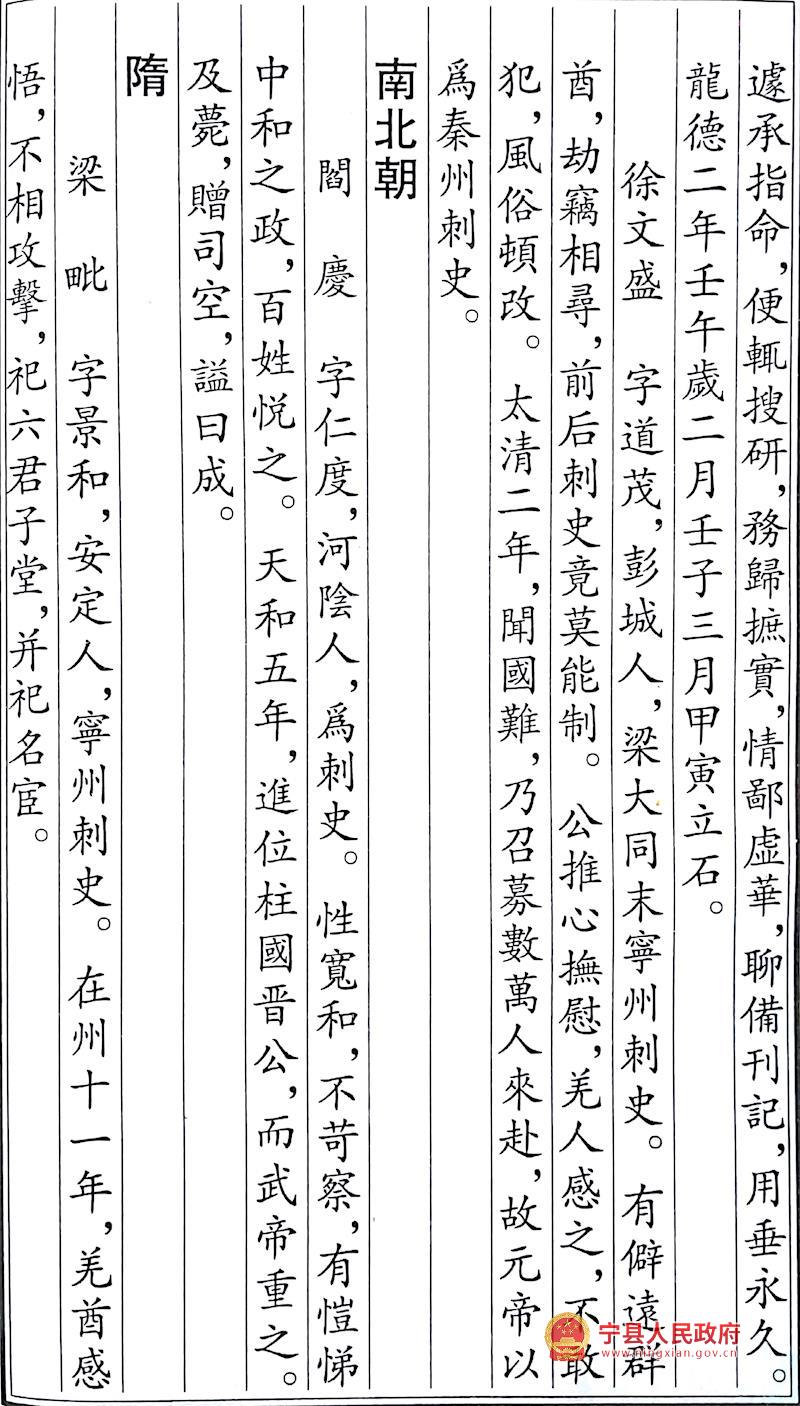 遽承指命，便輒搜研，務歸摭實，情鄙虚華，聊備刊記，用垂永久。
龍德二年壬午歲二月壬子三月甲寅立石。
徐文盛　字道茂，彭城人，梁大同末寧州刺史。有僻遠群
酋，劫竊相尋，前后刺史竟莫能制。公推心撫慰，羌人感之，不敢
犯，風俗頓改。太清二年，聞國難，乃召募數萬人來赴，故元帝以
爲秦州刺史。
南北朝
閻　慶　字仁度，河陰人，爲刺史。性寬和，不苛察，有愷悌
中和之政，百姓悦之。天和五年，進位柱國晋公，而武帝重之。
及薨，贈司空，謚曰成。
隋
梁　毗　字景和，安定人，寧州刺史。在州十一年，羌酋感
悟，不相攻擊，祀六君子堂，并祀名宦。
宁县人民政府
www.ningxian.gov.cn